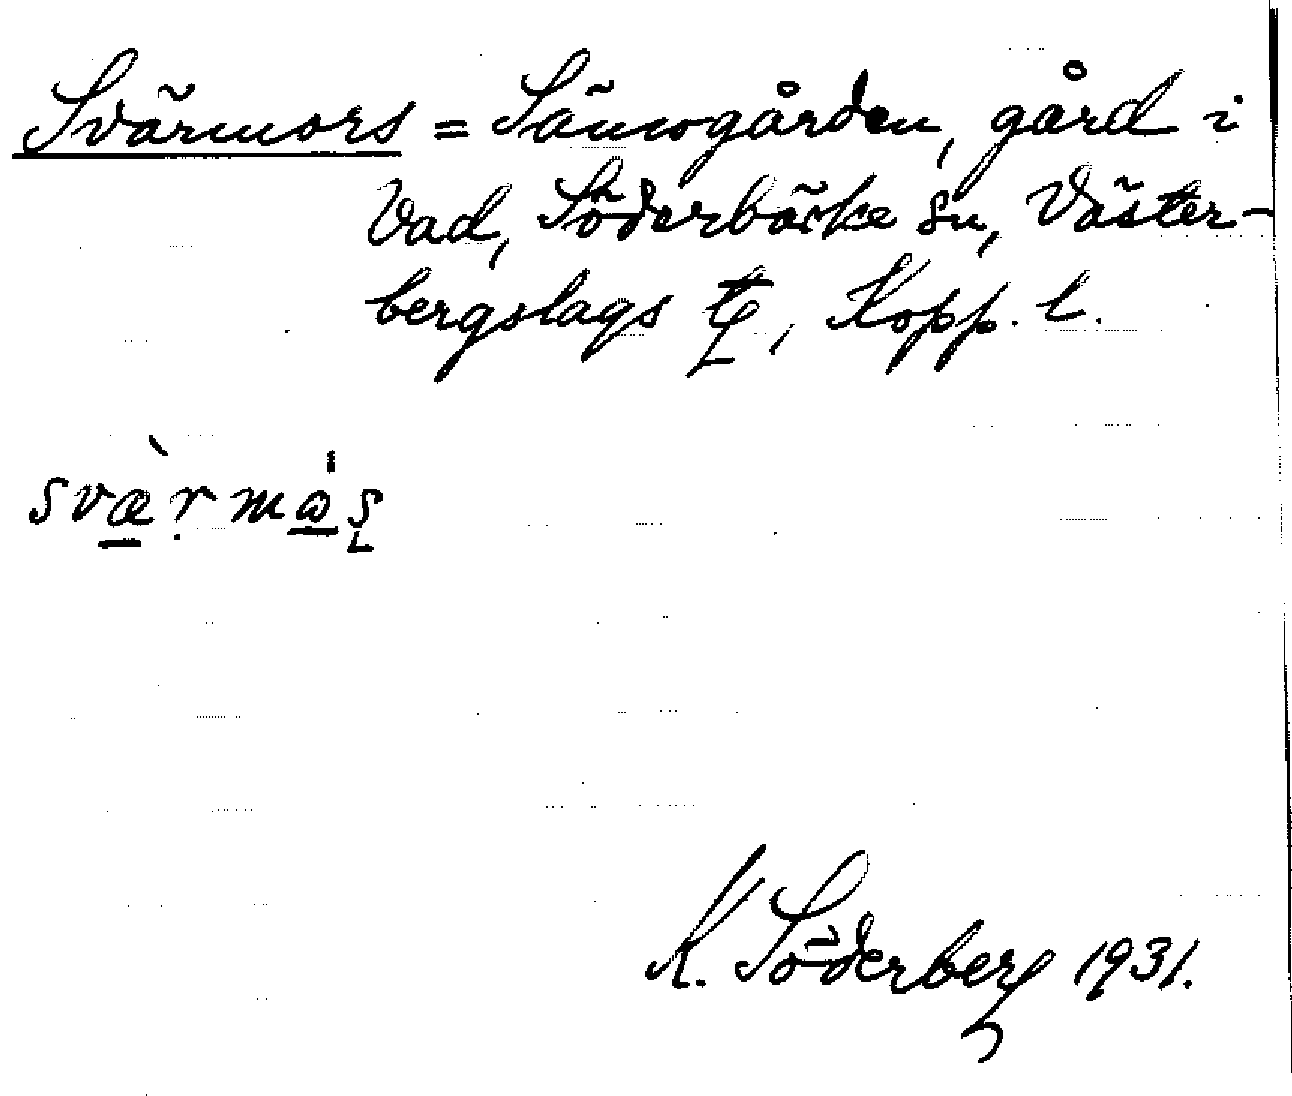 Svärmors = Sämsgården, gård i
Vad, Söderbärke sn, Väster-
bergslags tg, Kopp. l.
svæ̀r mɷ̀ʂ
K. Söderberg 1931.